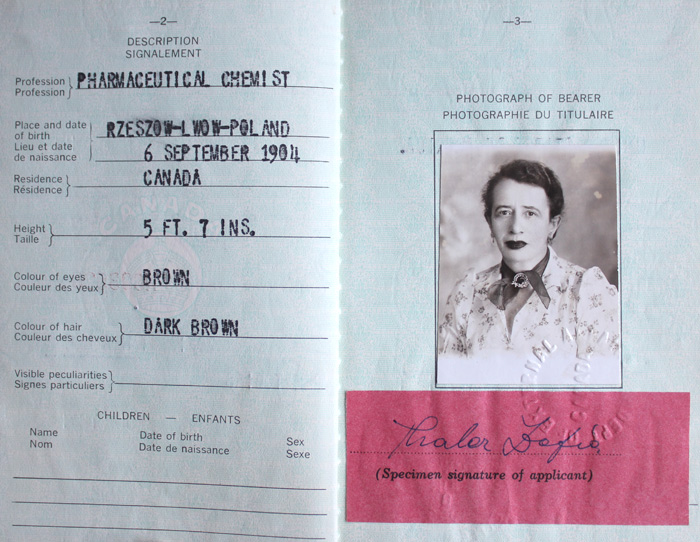 —2—
DESCRIPTION
SIGNALEMENT
Profession
Profession
PHARMACEUTICAL CHEMIST
Place and date
of birth
Lieu et date
de naissance
RZESZOW-LWOW-POLAND
6 SEPTEMBER 1904
Residence
Résidence
CANADA
Height
Taille
5 FT. 7 INS.
Colour of eyes
Couleur des yeux
BROWN
Colour of hair
Couleur des cheveux
DARK BROWN
Visible peculiarities
Signes particuliers
CHILDREN — ENFANTS
Name
Nom
Date of birth
Date de naissance
Sex
Sexe
—3—
PHOTOGRAPH OF BEARER
PHOTOGRAPHIE DU TITULAIRE
(Specimen signature of applicant)